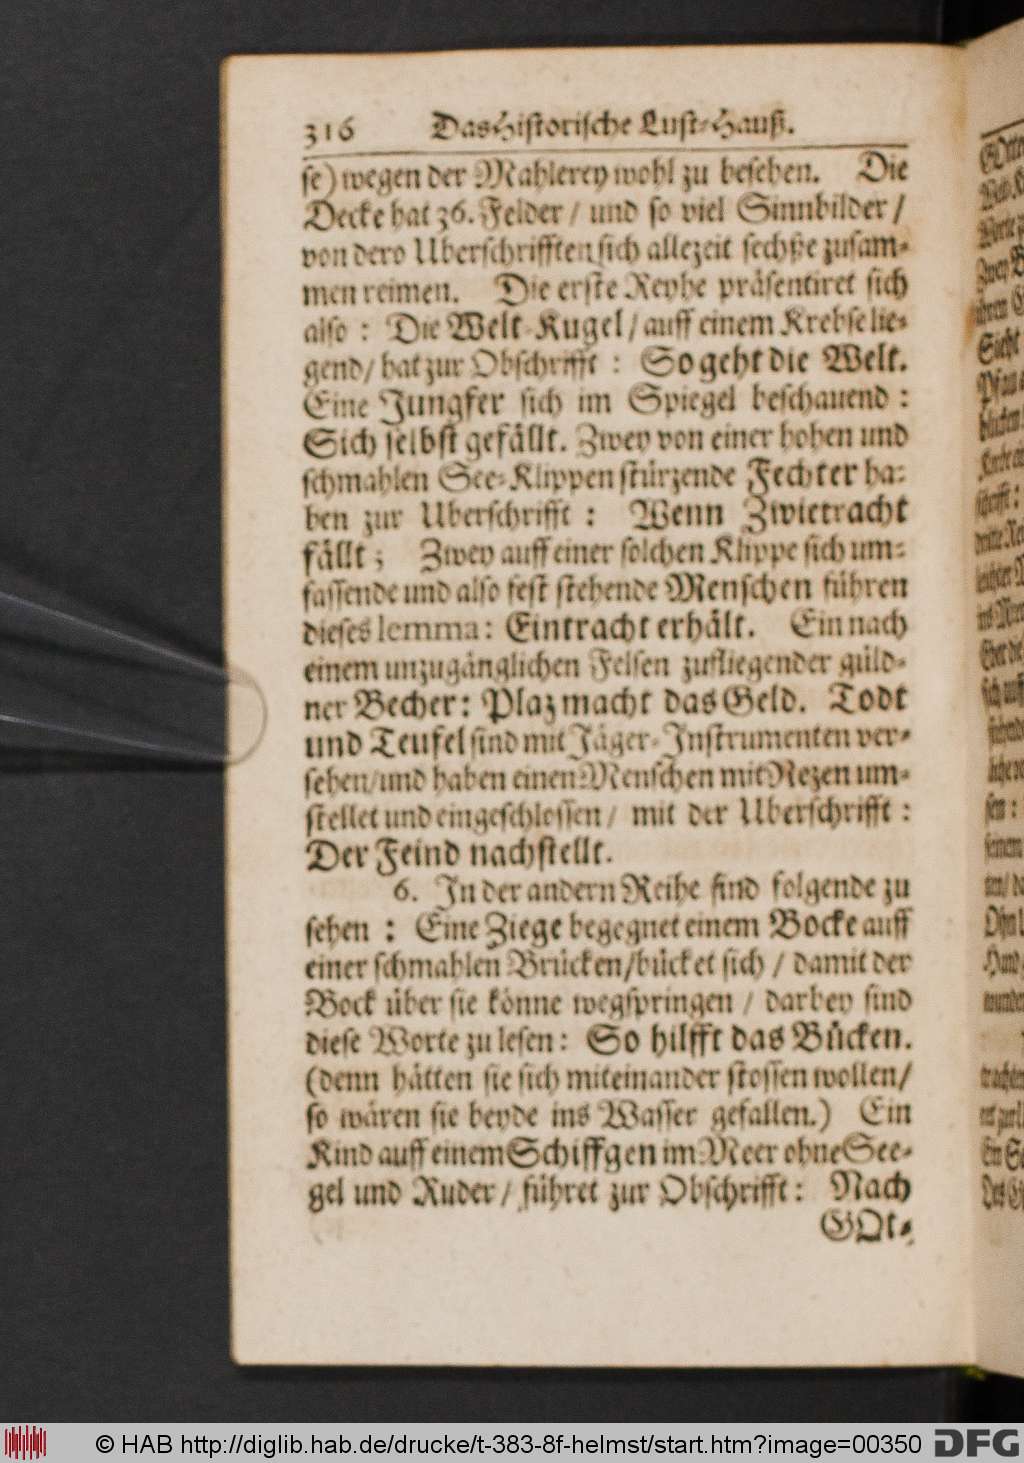 316 Das Historische Lust-Hauß.
se) wegen der Mahlerey wohl zu besehen. Die
Decke hat 36. Felder / und so viel Sinnbilder /
von dero Uberschrifften sich allezeit sechße zusam-
men reimen. Die erste Reyhe präsentiret sich
also : Die Welt-Kugel / auff einem Krebse lie-
gend / hat zur Obschrifft : So geht die Welt.
Eine Jungfer sich im Spiegel beschauend :
Sich selbst gefällt. Zwey von einer hohen und
schmahlen See-Klippen stürzende Fechter ha-
ben zur Uberschrifft : Wenn Zwietracht
fällt ; Zwey auff einer solchen Klippe sich um-
fassende und also fest stehende Menschen führen
dieses lemma: Eintracht erhält. Ein nach
einem unzugänglichen Felsen zufliegender güld-
ner Becher: Plaz macht das Geld. Todt
und Teufel sind mit Jäger-Instrumenten ver-
sehen/und haben einen Menschen mit Nezen um-
stellet und eingeschlossen / mit der Uberschrifft :
Der Feind nachstellt.
6. In der andern Reihe sind folgende zu
sehen : Eine Ziege begegnet einem Bocke auff
einer schmahlen Brücken/bücket sich / damit der
Bock über sie könne wegspringen / darbey sind
diese Worte zu lesen: So hilfft das Bücken.
(denn hätten sie sich miteinander stossen wollen/
so wären sie beyde ins Wasser gefallen.) Ein
Kind auff einem Schiffgen im Meer ohne See-
gel und Ruder / führet zur Obschrifft: Nach
GOt-
© HAB http://diglib.hab.de/drucke/t-383-8f-helmst/start.htm?image=00350 DFG